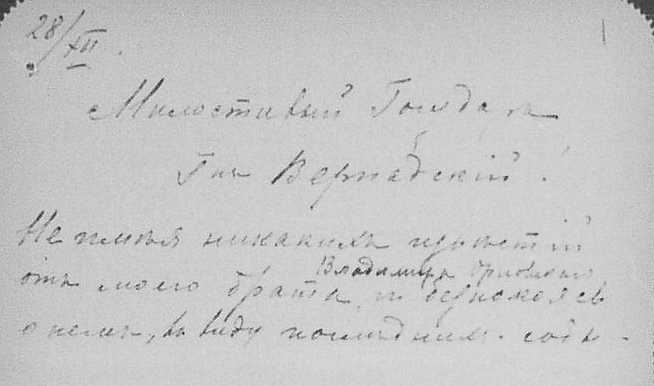 28/XII.
Милостивый Государь
Гнъ Вернадский!
Не имѣя никакихъ извѣстій
Владимира
отъ моего брата, и безпокоясь
о немъ, въ виду последнихъ собы-